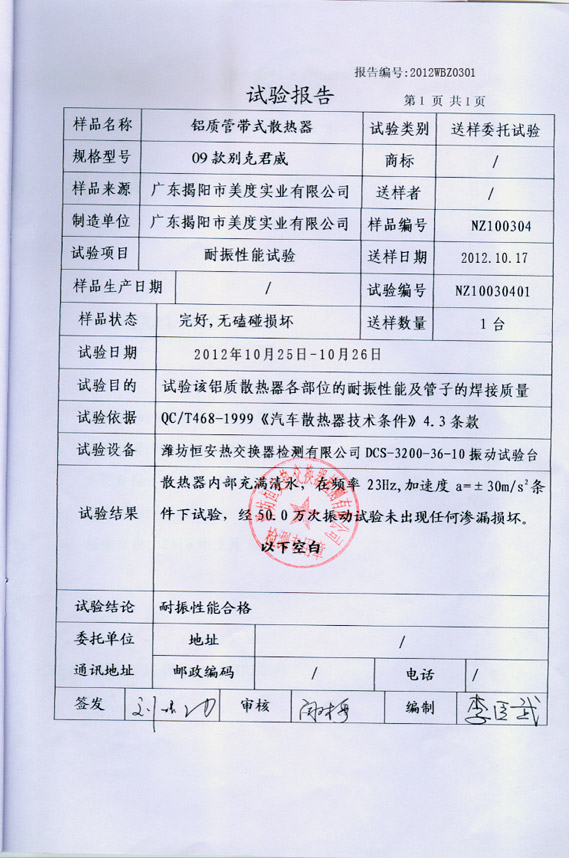 报告编号:2012WBZ0301
试验报告
第1页 共1页
样品名称 铝质管带式散热器 试验类别 送样委托试验
规格型号 09款别克君威 商标 /
样品来源 广东揭阳市美度实业有限公司 送样者 /
制造单位 广东揭阳市美度实业有限公司 样品编号 NZ100304
试验项目 耐振性能试验 送样日期 2012.10.17
样品生产日期 / 试验编号 NZ10030401
样品状态 完好,无磕碰损坏 送样数量 1台
试验日期 2012年10月25日-10月26日
试验目的 试验该铝质散热器各部位的耐振性能及管子的焊接质量
试验依据 QC/T468-1999《汽车散热器技术条件》4.3条款
试验设备 潍坊恒安热交换器检测有限公司DCS-3200-36-10振动试验台
散热器内部充满清水，在频率23Hz,加速度a=±30m/s²条
试验结果 件下试验，经50.0万次振动试验未出现任何渗漏损坏。
以下空白
试验结论 耐振性能合格
委托单位 地址 /
通讯地址 邮政编码 / 电话 /
签发 审核 编制